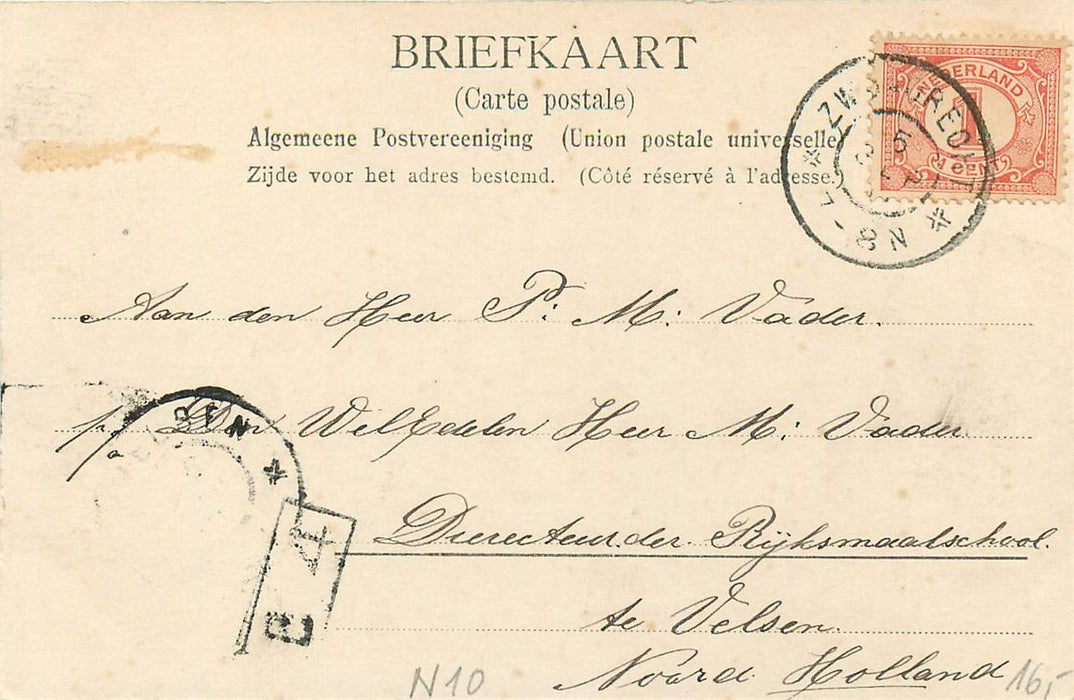 BRIEFKAART
(Carte postale)
Algemeene Postvereeniging (Union postale universelle)
Zijde voor het adres bestemd. (Côté réservé à l'adresse.)
NEDERLAND
1
1 CENT
8-N
Aan den Heer P: M: Vader.
p/a Den WelEdelen Heer M: Vader
Directeur der Rijksnaalschool.
te Velsen
Noord Holland
N10
16,-